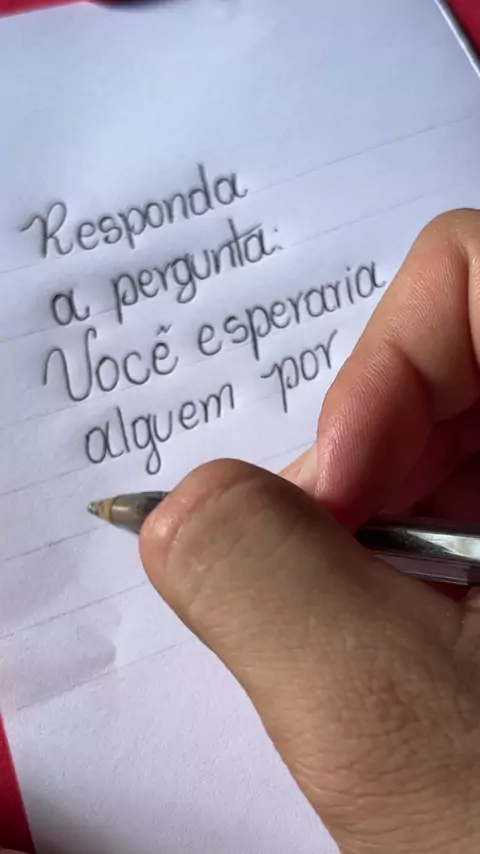 Responda
a pergunta:
Você esperaria
alguem por